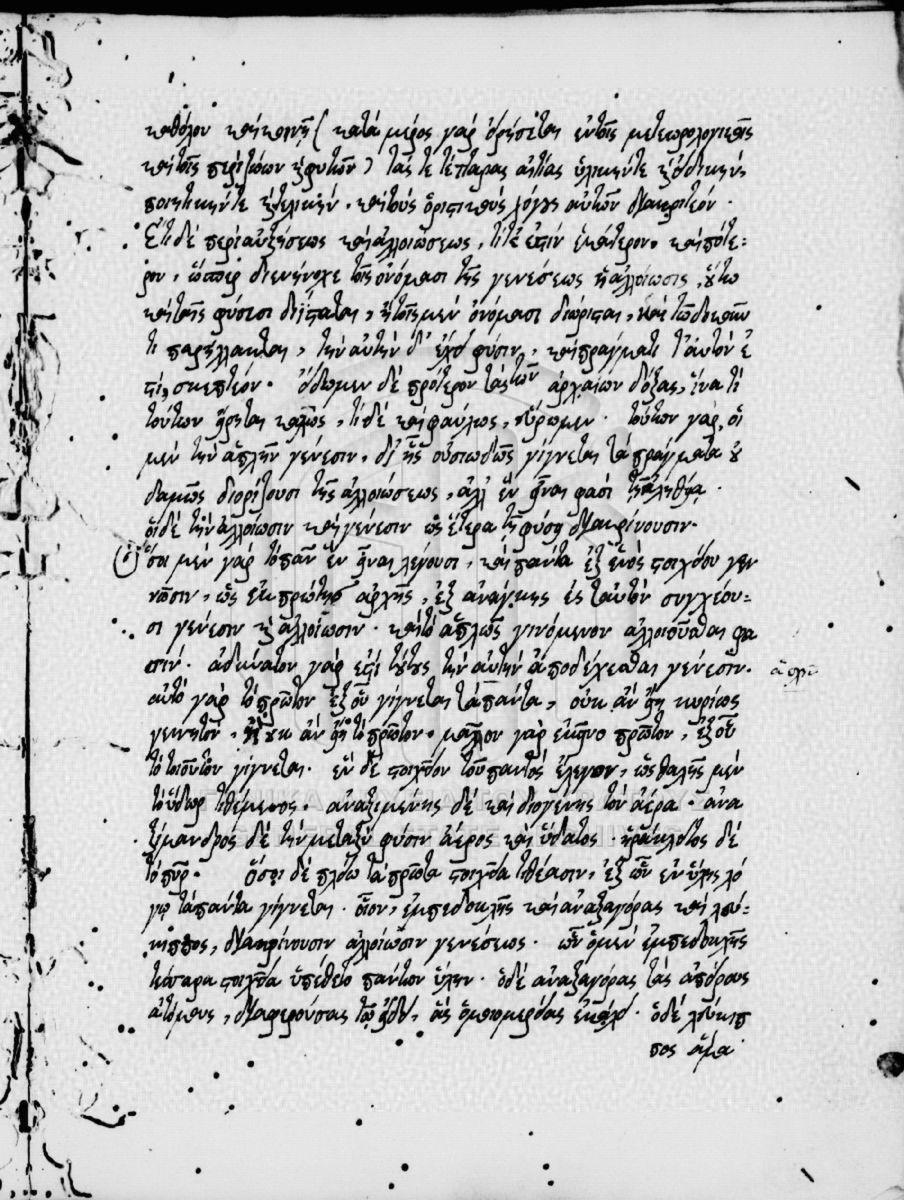 καθόλου καὶ κοινῇ (κατὰ μέρος γὰρ ὁρίσεται ἐν τοῖς μετεωρολογικοῖς
καὶ τοῖς περὶ ζώων καὶ φυτῶν) τάς τε τέτταρας αἰτίας ὑλικήν τε καὶ εἰδικὴν
ποιητικήν τε καὶ τελικήν. καὶ τοὺς ὁριστικοὺς λόγους αὐτῶν διακριτέον.
Ἔτι δὲ περὶ αὐξήσεως καὶ ἀλλοιώσεως, τί τέ ἐστιν ἑκάτερον. καὶ πότε-
ρον, ὥσπερ διενήνοχε τοῖς ὀνόμασι τῆς γενέσεως ἡ ἀλλοίωσις, οὕτω
καὶ ταῖς φύσεσι διΐσταται, ἢ τοῖς μὲν ὀνόμασι διώρισται, καὶ
τι παρήλλακται, τὴν αὐτὴν δ' ἔχει φύσιν, καὶ πράγματι ταὐτόν ἐ
στι, σκεπτέον. εἴδωμεν δὲ πρότερον τὰς τῶν ἀρχαίων δόξας, ἵνα τί
τούτων εἴρηται καλῶς, τί δὲ καὶ φαύλως, εὕρωμεν. τούτων γὰρ, οἱ
μὲν τὴν ἁπλῆν γένεσιν, δι' ἧς οὐσιωδῶς γίγνεται τὰ πράγματα οὐ
δαμῶς διορίζουσι τῆς ἀλλοιώσεως, ἀλλ' ἓν εἶναι φασὶ τῇ ἀληθείᾳ.
οἱ δὲ τὴν ἀλλοίωσιν καὶ γένεσιν ὡς ἕτερα τῇ φύσει διακρίνουσιν.
ὅσοι μὲν γὰρ τὸ πᾶν ἓν εἶναι λέγουσι, καὶ πάντα ἐξ ἑνὸς στοιχείου γεν
νῶσιν, ὡς ἐκ πρώτης ἀρχῆς, ἐξ ἀνάγκης ἐς ταὐτὸν συγχέου-
σι γένεσιν καὶ ἀλλοίωσιν. καὶ τὸ ἁπλῶς γινόμενον ἀλλοιοῦσθαι φα
σίν. ἀδύνατον γὰρ ἐστὶ τούτους τὴν αὐτὴν ἀποδέχεσθαι γένεσιν.
αὐτὸ γὰρ τὸ πρῶτον ἐξ οὗ γίγνεται τὰ πάντα, οὐκ ἂν εἴη κυρίως
γεννητόν. ἢ οὐκ ἂν εἴη τὸ πρῶτον. μᾶλλον γὰρ ἐκεῖνο πρῶτον, ἐξ οὗ
τὸ τοιοῦτον γίγνεται. ἓν δὲ στοιχεῖον τοῦ παντὸς ἔλεγον, ὡς θαλῆς μὲν
τὸ ὕδωρ τιθέμενος. ἀναξιμένης δὲ καὶ διογένης τὸν ἀέρα. ἀνα
ξίμανδρος δὲ τὴν μεταξὺ φύσιν ἀέρος καὶ ὕδατος. ἡράκλειτος δὲ
τὸ πῦρ. Ὅσοι δὲ πλείω τὰ πρῶτα στοιχεῖα τιθέασιν, ἐξ ὧν ἐν ὕλης λό
γῳ τὰ πάντα γίγνεται. οἷον, ἐμπεδοκλῆς καὶ ἀναξαγόρας καὶ λεύ-
κιππος, διακρίνουσιν ἀλλοίωσιν γενέσεως. ὧν ὁ μὲν ἐμπεδοκλῆς
τέσσαρα στοιχεῖα ὑπέθετο πάντων ὕλην. ὁ δὲ ἀναξαγόρας τὰς ἀπείρους
ἀτόμους, διαφερούσας τῷ εἴδει, ἃς ὁμοιομερείας ἐκάλει. ὁ δὲ λεύκιπ
πος ἅμα